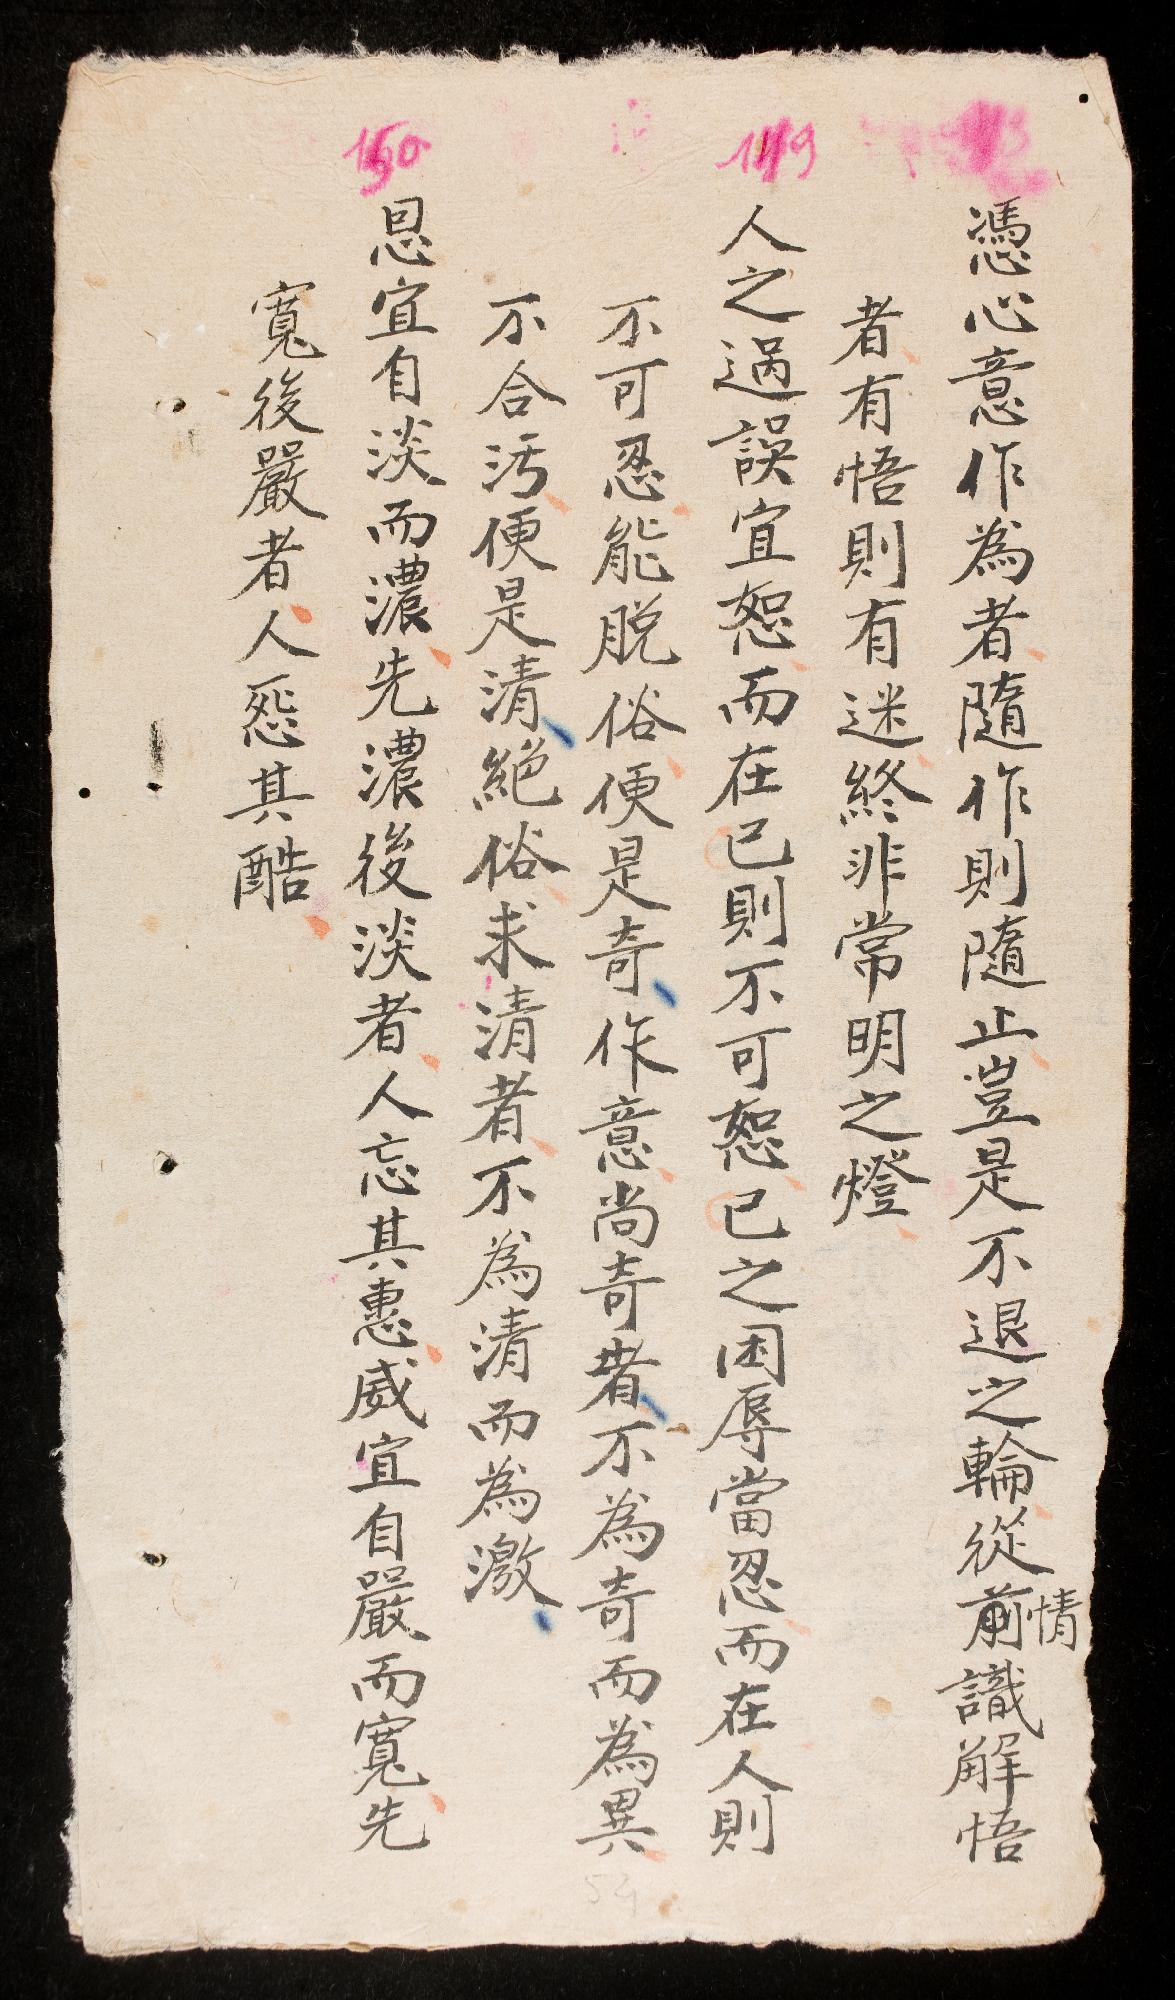 憑心意作為者隨作則隨止豈是不退之輪從前識解悟
情
者有悟則有迷終非常明之燈
149
人之過誤宜恕而在已則不可恕已之困辱當忍而在人則
不可忍能脱俗便是奇作意尚奇者不為奇而為異
不合污便是清絕俗求清者不為清而為激
150
恩宜自淡而濃先濃後淡者人忘其惠威宜自嚴而寬先
寬後嚴者人怨其酷